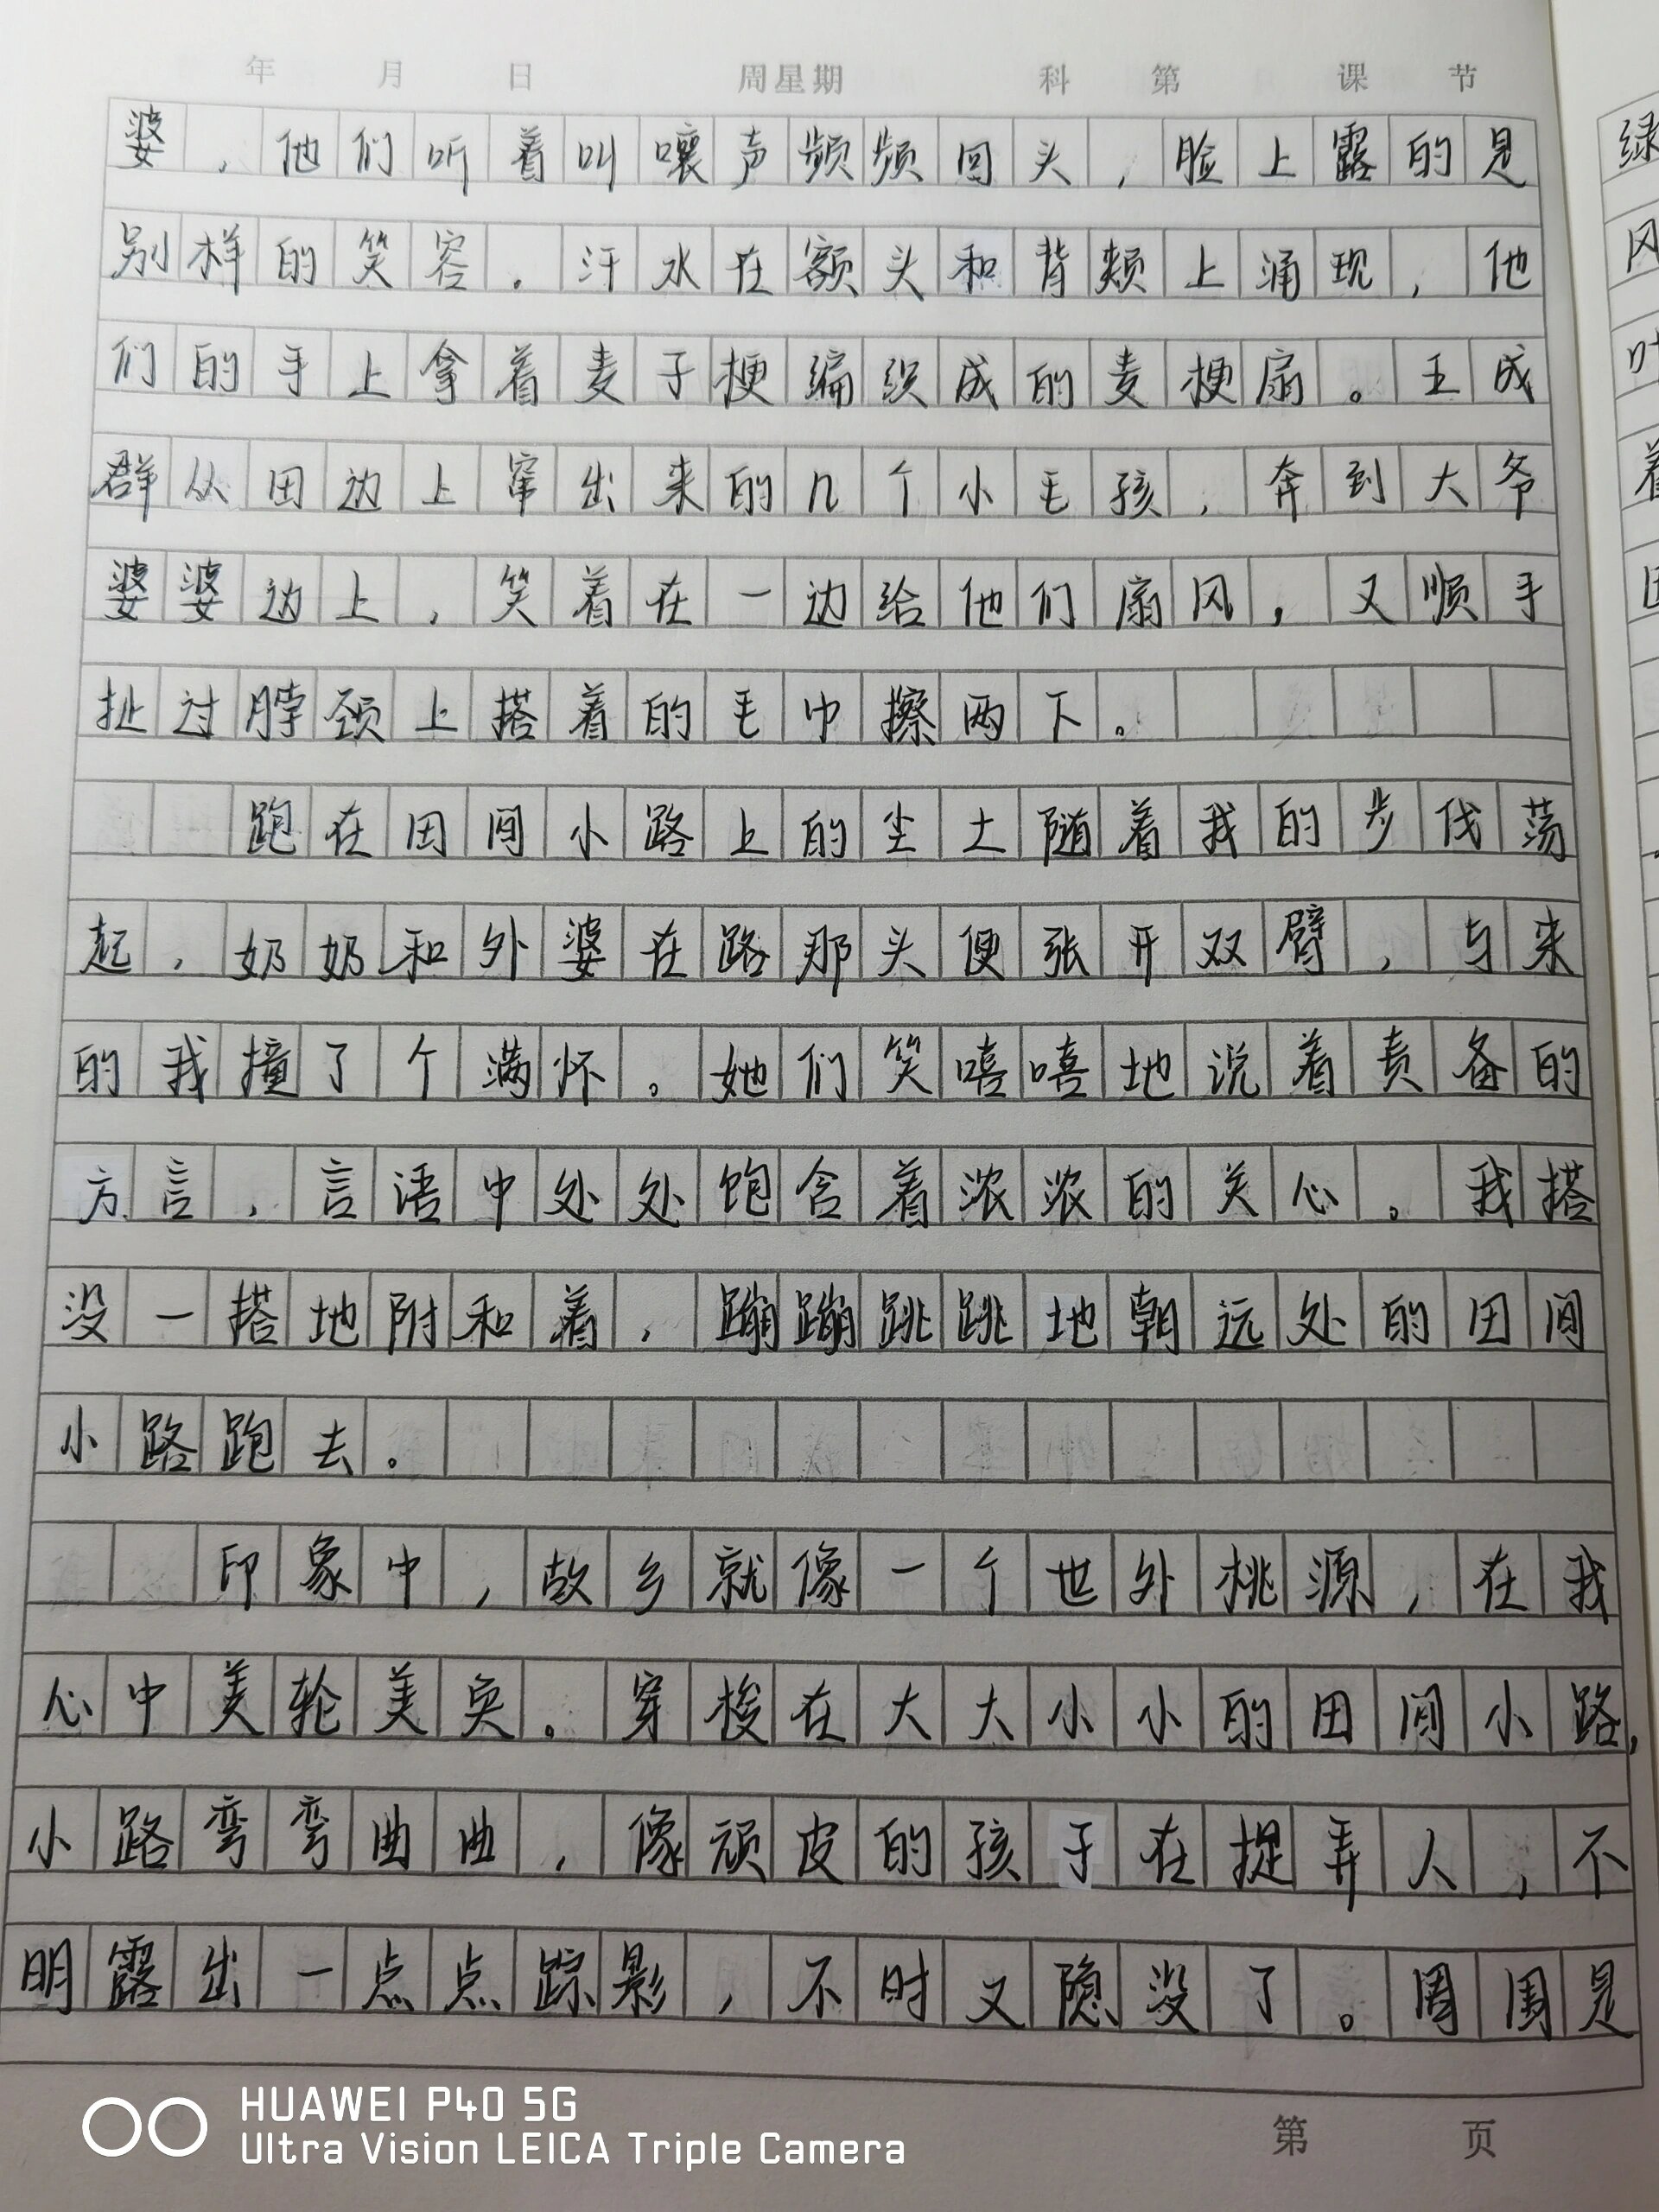 年 月 日 周星期 科 第 课 节
婆，他们听着叫嚷声频频回头，脸上露的是
别样的笑容。汗水在额头和背颊上涌现，他
们的手上拿着麦子梗编织成的麦梗扇。王成
群从田边上窜出来的几个小毛孩，奔到大爷
婆婆边上，笑着在一边给他们扇风，又顺手
扯过脖颈上搭着的毛巾擦两下。
跑在田间小路上的尘土随着我的步伐荡
起，奶奶和外婆在路那头便张开双臂，与来
的我撞了个满怀。她们笑嘻嘻地说着责备的
方言，言语中处处饱含着浓浓的关心。我搭
没一搭地附和着，蹦蹦跳跳地朝远处的田间
小路跑去。
印象中，故乡就像一个世外桃源，在我
心中美轮美奂。穿梭在大大小小的田间小路，
小路弯弯曲曲，像顽皮的孩子在捉弄人，不
明露出一点点踪影，不时又隐没了。周围是
第 页
绿
风
叶
着
HUAWEI P40 5G
Ultra Vision LEICA Triple Camera